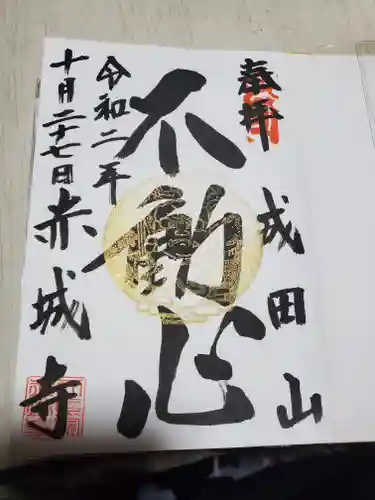 奉拝
成田山
不動心
令和二年
十月二十七日
赤城寺